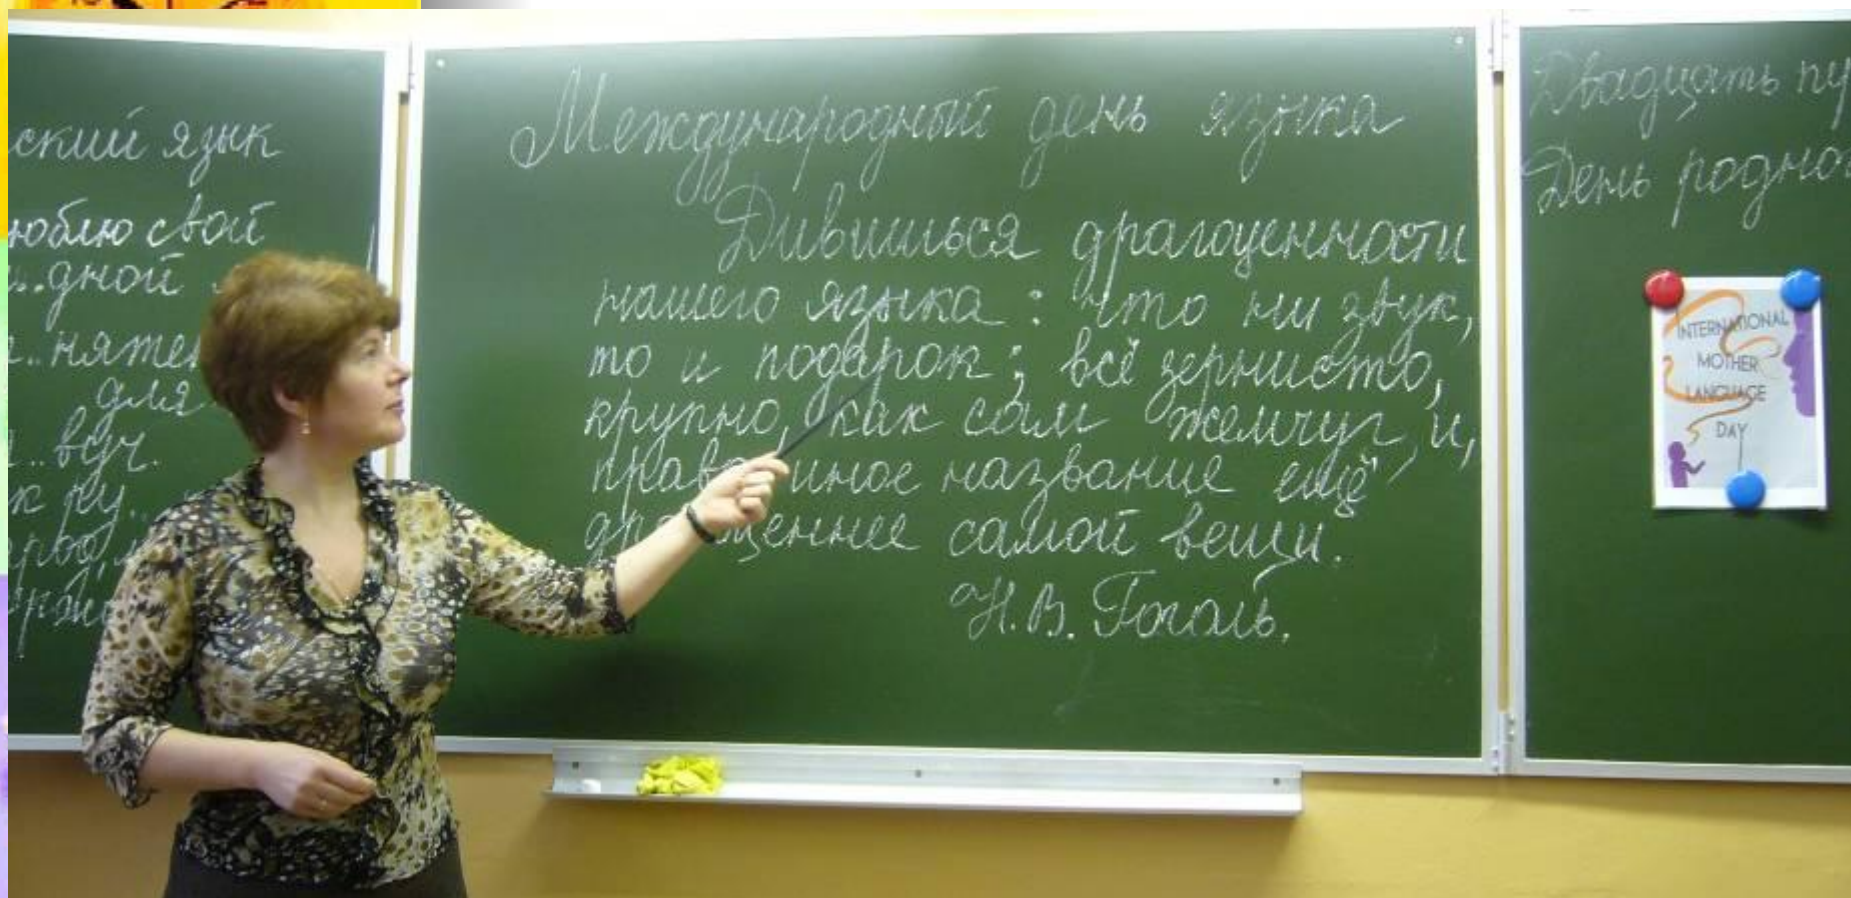 ский язык
юблю свой
..дной
..няте
для
..вуч.
к ру..
Международный день языка
Дивишься драгоценности
нашего языка: что ни звук,
то и подарок; всё зернисто,
крупно, как сам жемчуг, и,
прав иное название ещё
др щеннее самой вещи.
Н.В. Гоголь.
Двадцать пе
День родно
INTERNATIONAL
MOTHER
LANGUAGE
DAY